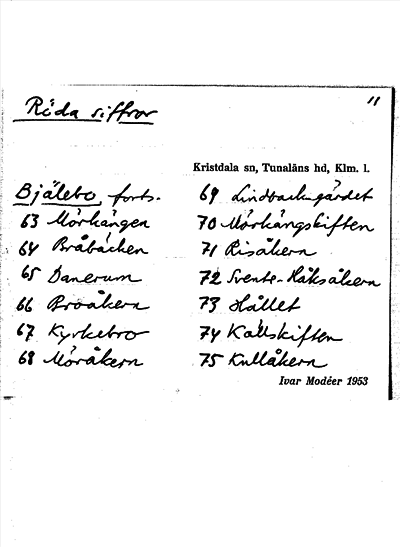 11
Röda siffror
Kristdala sn, Tunaläns hd, Klm. l.
Bjälebo forts.
63 Mörhängen
64 Bråbäcken
65 Danerum
66 Broåkern
67 Kyrkebro
68 Möråkern
69 Lindbacksgärdet
70 Mörhängskiften
71 Risåkern
72 Svente-Håksåkern
73 Hållet
74 Kallskiften
75 Kullåkern
Ivar Modéer 1953